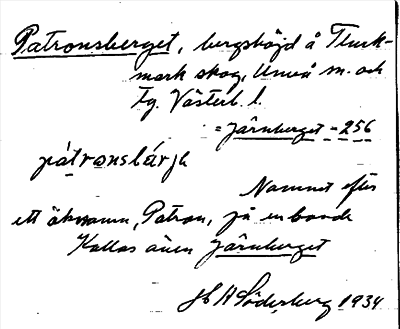 Patronsberget, bergshöjd å Flurk-
mark skog, Umeå sn. och
Fg. Västerb. l.
= Järnberget = 256
pátronsbárjh
Namnet efter
ett öknamn, Patron, på en bonde
Kallas även Järnberget
H A Söderberg 1934